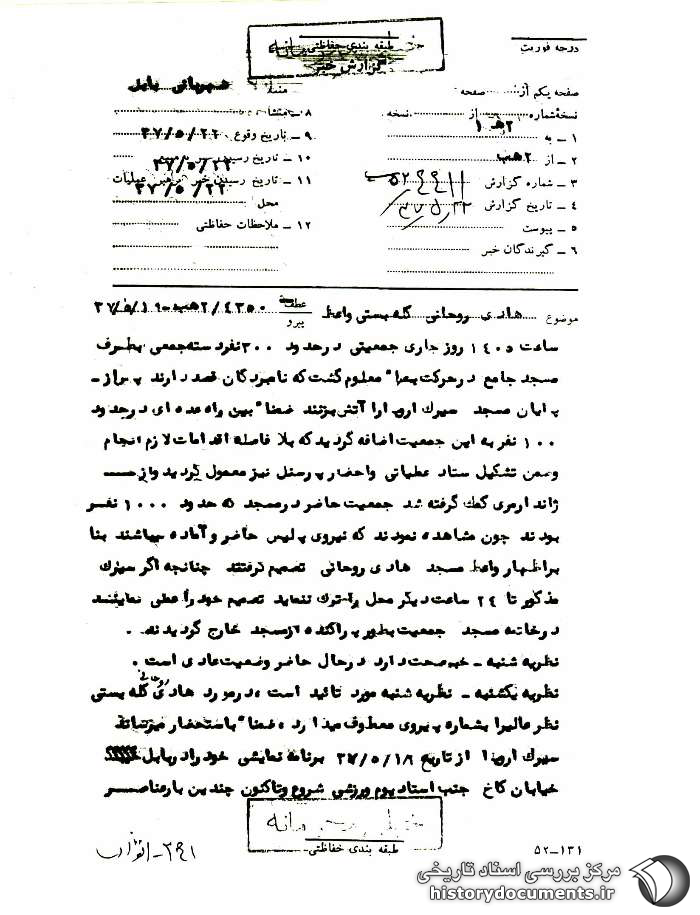 درجه فوریت
طبقه بندی حفاظتی
گزارش خبر
صفحه یکم از صفحه
نسخه شماره از نسخه
۱ – به ۲ هـ ۱
۲ – از ۲ هب
۳ – شماره گزارش
۴ – تاریخ گزارش
۵ – پیوست
۶ – گیرندگان خبر
شهربانی بابل
۸ – منشاء
۹ – تاریخ وقوع ۳۷/۵/۲۲
۱۰ – تاریخ رسیدن ۳۷/۵/۲۲
۱۱ – تاریخ رسیدن خبر برهبر عملیات ۳۷/۵/۲۲
محل
۱۲ – ملاحظات حفاظتی
موضوع هادی روحانی گله بستی واعظ عطف پیرو ۲/۴۳۵۰هب – ۳۷/۵/۱۹
ساعت ۱۴۰۵ روز جاری جمعیتی در حدود ۳۰۰ نفر دسته جمعی بطرف
مسجد جامع در حرکت بعداً معلوم گشت که نامبردگان قصد دارند پس از
پایان مسجد سیرک اروپا را آتش بزنند ضمناً بین راه عده ای در حدود
۱۰۰ نفر به این جمعیت اضافه گردید که بلا فاصله اقدامات لازم انجام
وضمن تشکیل ستاد عملیاتی واحضار پرسنل نیز معمول گردید واز
ژاندارمری کمک گرفته شد جمعیت حاضر در مسجد که حدود ۱۰۰۰ نفر
بودند چون مشاهده نمودند که نیروی پلیس حاضر و آماده میباشند بنا
بر اظهار واعظ مسجد هادی روحانی تصمیم گرفتند چنانچه اگر سیرک
مذکور تا ۲۴ ساعت دیگر محل را ترک ننماید تصمیم خود را عملی نمایند
در خاتمه مسجد جمعیت بطور پراکنده از مسجد خارج گردیدند .
نظریه شنبه – خبر صحت دارد در حال حاضر وضعیت عادی است .
نظریه یکشنبه – نظریه شنبه مورد تائید است در مورد هادی روحانی گله بستی
نظر عالیرا بشماره پیروی معطوف میدارد ضمناً باستحضار میرساند
سیرک اروپا از تاریخ ۳۷/۵/۱۸ برنامه نمایشی خود را در بابل
خیابان کاخ جنب استادیوم ورزشی شروع وتاکنون چندین بار عناصر
طبقه بندی حفاظتی
۵۲–۱۳۱
مرکز بررسی اسناد تاریخی
historydocuments.ir